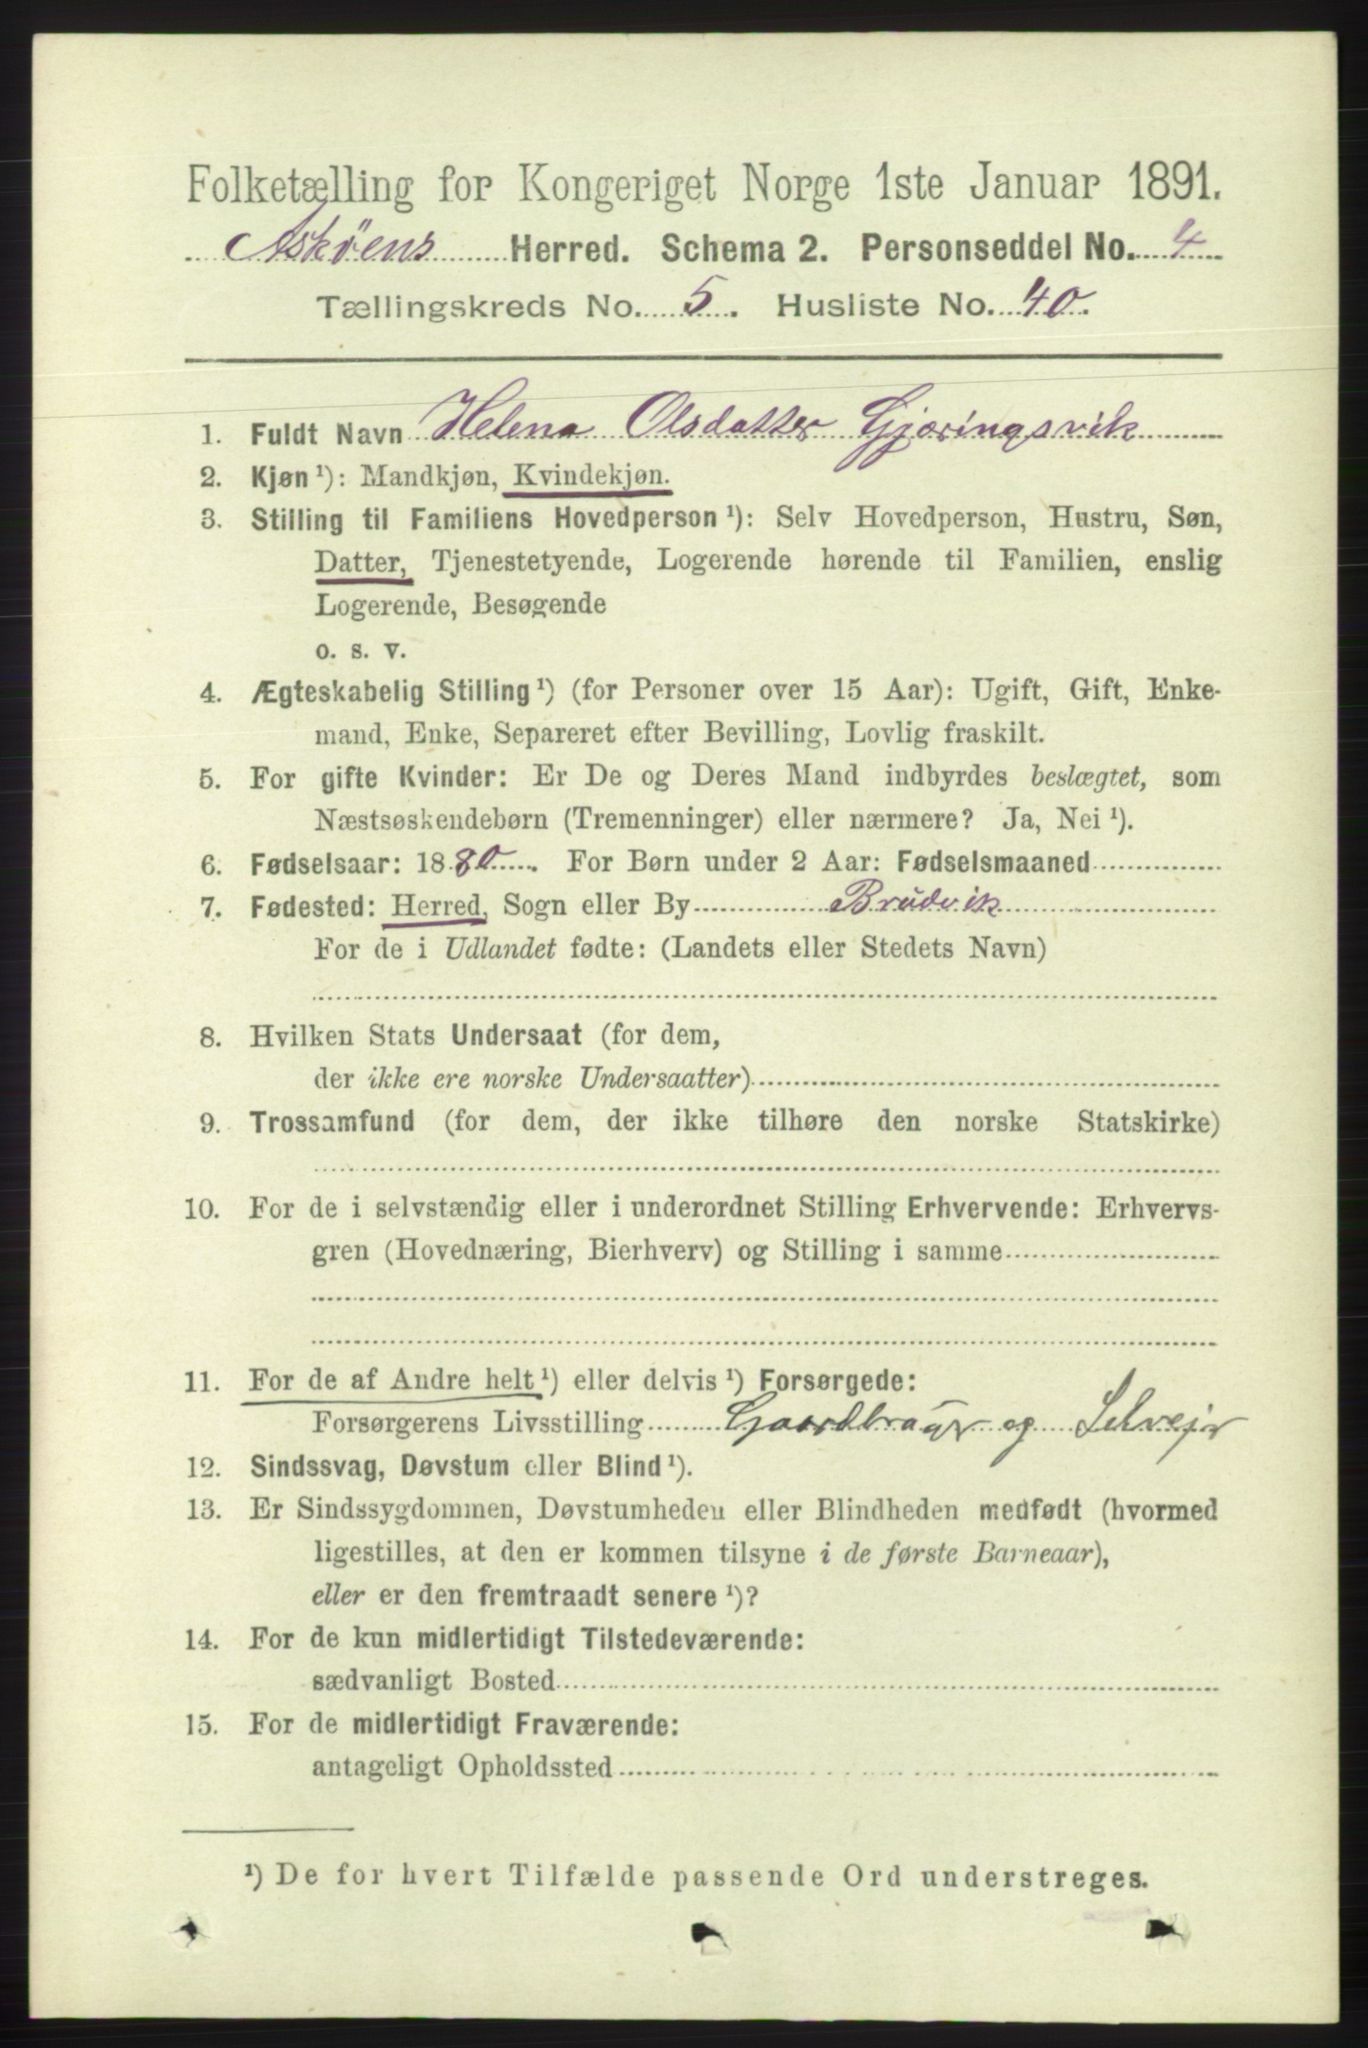 Folketælling for Kongeriget Norge 1ste Januar 1891.
Askøens Herred. Schema 2. Personseddel No. 4
Tællingskreds No. 5. Husliste No. 40.
1. Fuldt Navn Helena Olsdatter Gjøringsvik
2. Kjøn ¹): Mandkjøn, Kvindekjøn.
3. Stilling til Familiens Hovedperson ¹): Selv Hovedperson, Hustru, Søn,
Datter, Tjenestetyende, Logerende hørende til Familien, enslig
Logerende, Besøgende
o. s. v.
4. Ægteskabelig Stilling ¹) (for Personer over 15 Aar): Ugift, Gift, Enke-
mand, Enke, Separeret efter Bevilling, Lovlig fraskilt.
5. For gifte Kvinder: Er De og Deres Mand indbyrdes beslægtet, som
Næstsøskendebørn (Tremenninger) eller nærmere? Ja, Nei ¹).
6. Fødselsaar: 1880. For Børn under 2 Aar: Fødselsmaaned
7. Fødested: Herred, Sogn eller By Brudvik
For de i Udlandet fødte: (Landets eller Stedets Navn)
8. Hvilken Stats Undersaat (for dem,
der ikke ere norske Undersaatter)
9. Trossamfund (for dem, der ikke tilhøre den norske Statskirke)
10. For de i selvstændig eller i underordnet Stilling Erhvervende: Erhvervs-
gren (Hovednæring, Bierhverv) og Stilling i samme
11. For de af Andre helt ¹) eller delvis ¹) Forsørgede:
Forsørgerens Livsstilling Gaardbrugr og Selvejr
12. Sindssvag, Døvstum eller Blind ¹).
13. Er Sindssygdommen, Døvstumheden eller Blindheden medfødt (hvormed
ligestilles, at den er kommen tilsyne i de første Barneaar),
eller er den fremtraadt senere ¹)?
14. For de kun midlertidigt Tilstedeværende:
sædvanligt Bosted
15. For de midlertidigt Fraværende:
antageligt Opholdssted
¹) De for hvert Tilfælde passende Ord understreges.